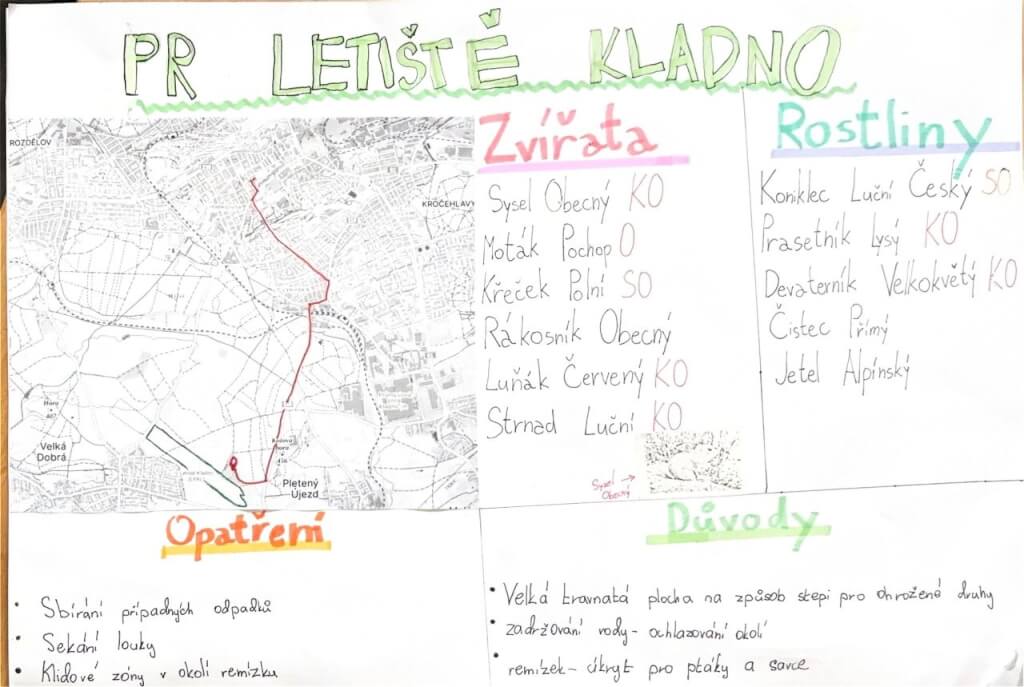 PR LETIŠTĚ KLADNO
ROZDĚLOV
KROČEHLAVY
Velká
Dobrá
Pletený
Újezd
Zvířata
Sysel Obecný KO
Moták Pochop O
Křeček Polní SO
Rákosník Obecný
Luňák Červený KO
Strnad Luční KO
Sysel →
Obecný
Rostliny
Koniklec Luční Český SO
Prasetník Lysý KO
Devaterník Velkokvětý KO
Čistec Přímý
Jetel Alpínský
Opatření
• Sbírání případných odpadků
• Sekání louky
• Klidové zóny v okolí remízku
Důvody
• Velká travnatá plocha na způsob stepi pro ohrožené druhy
• zadržování vody - ochlazování okolí
• remízek - úkryt pro ptáky a savce